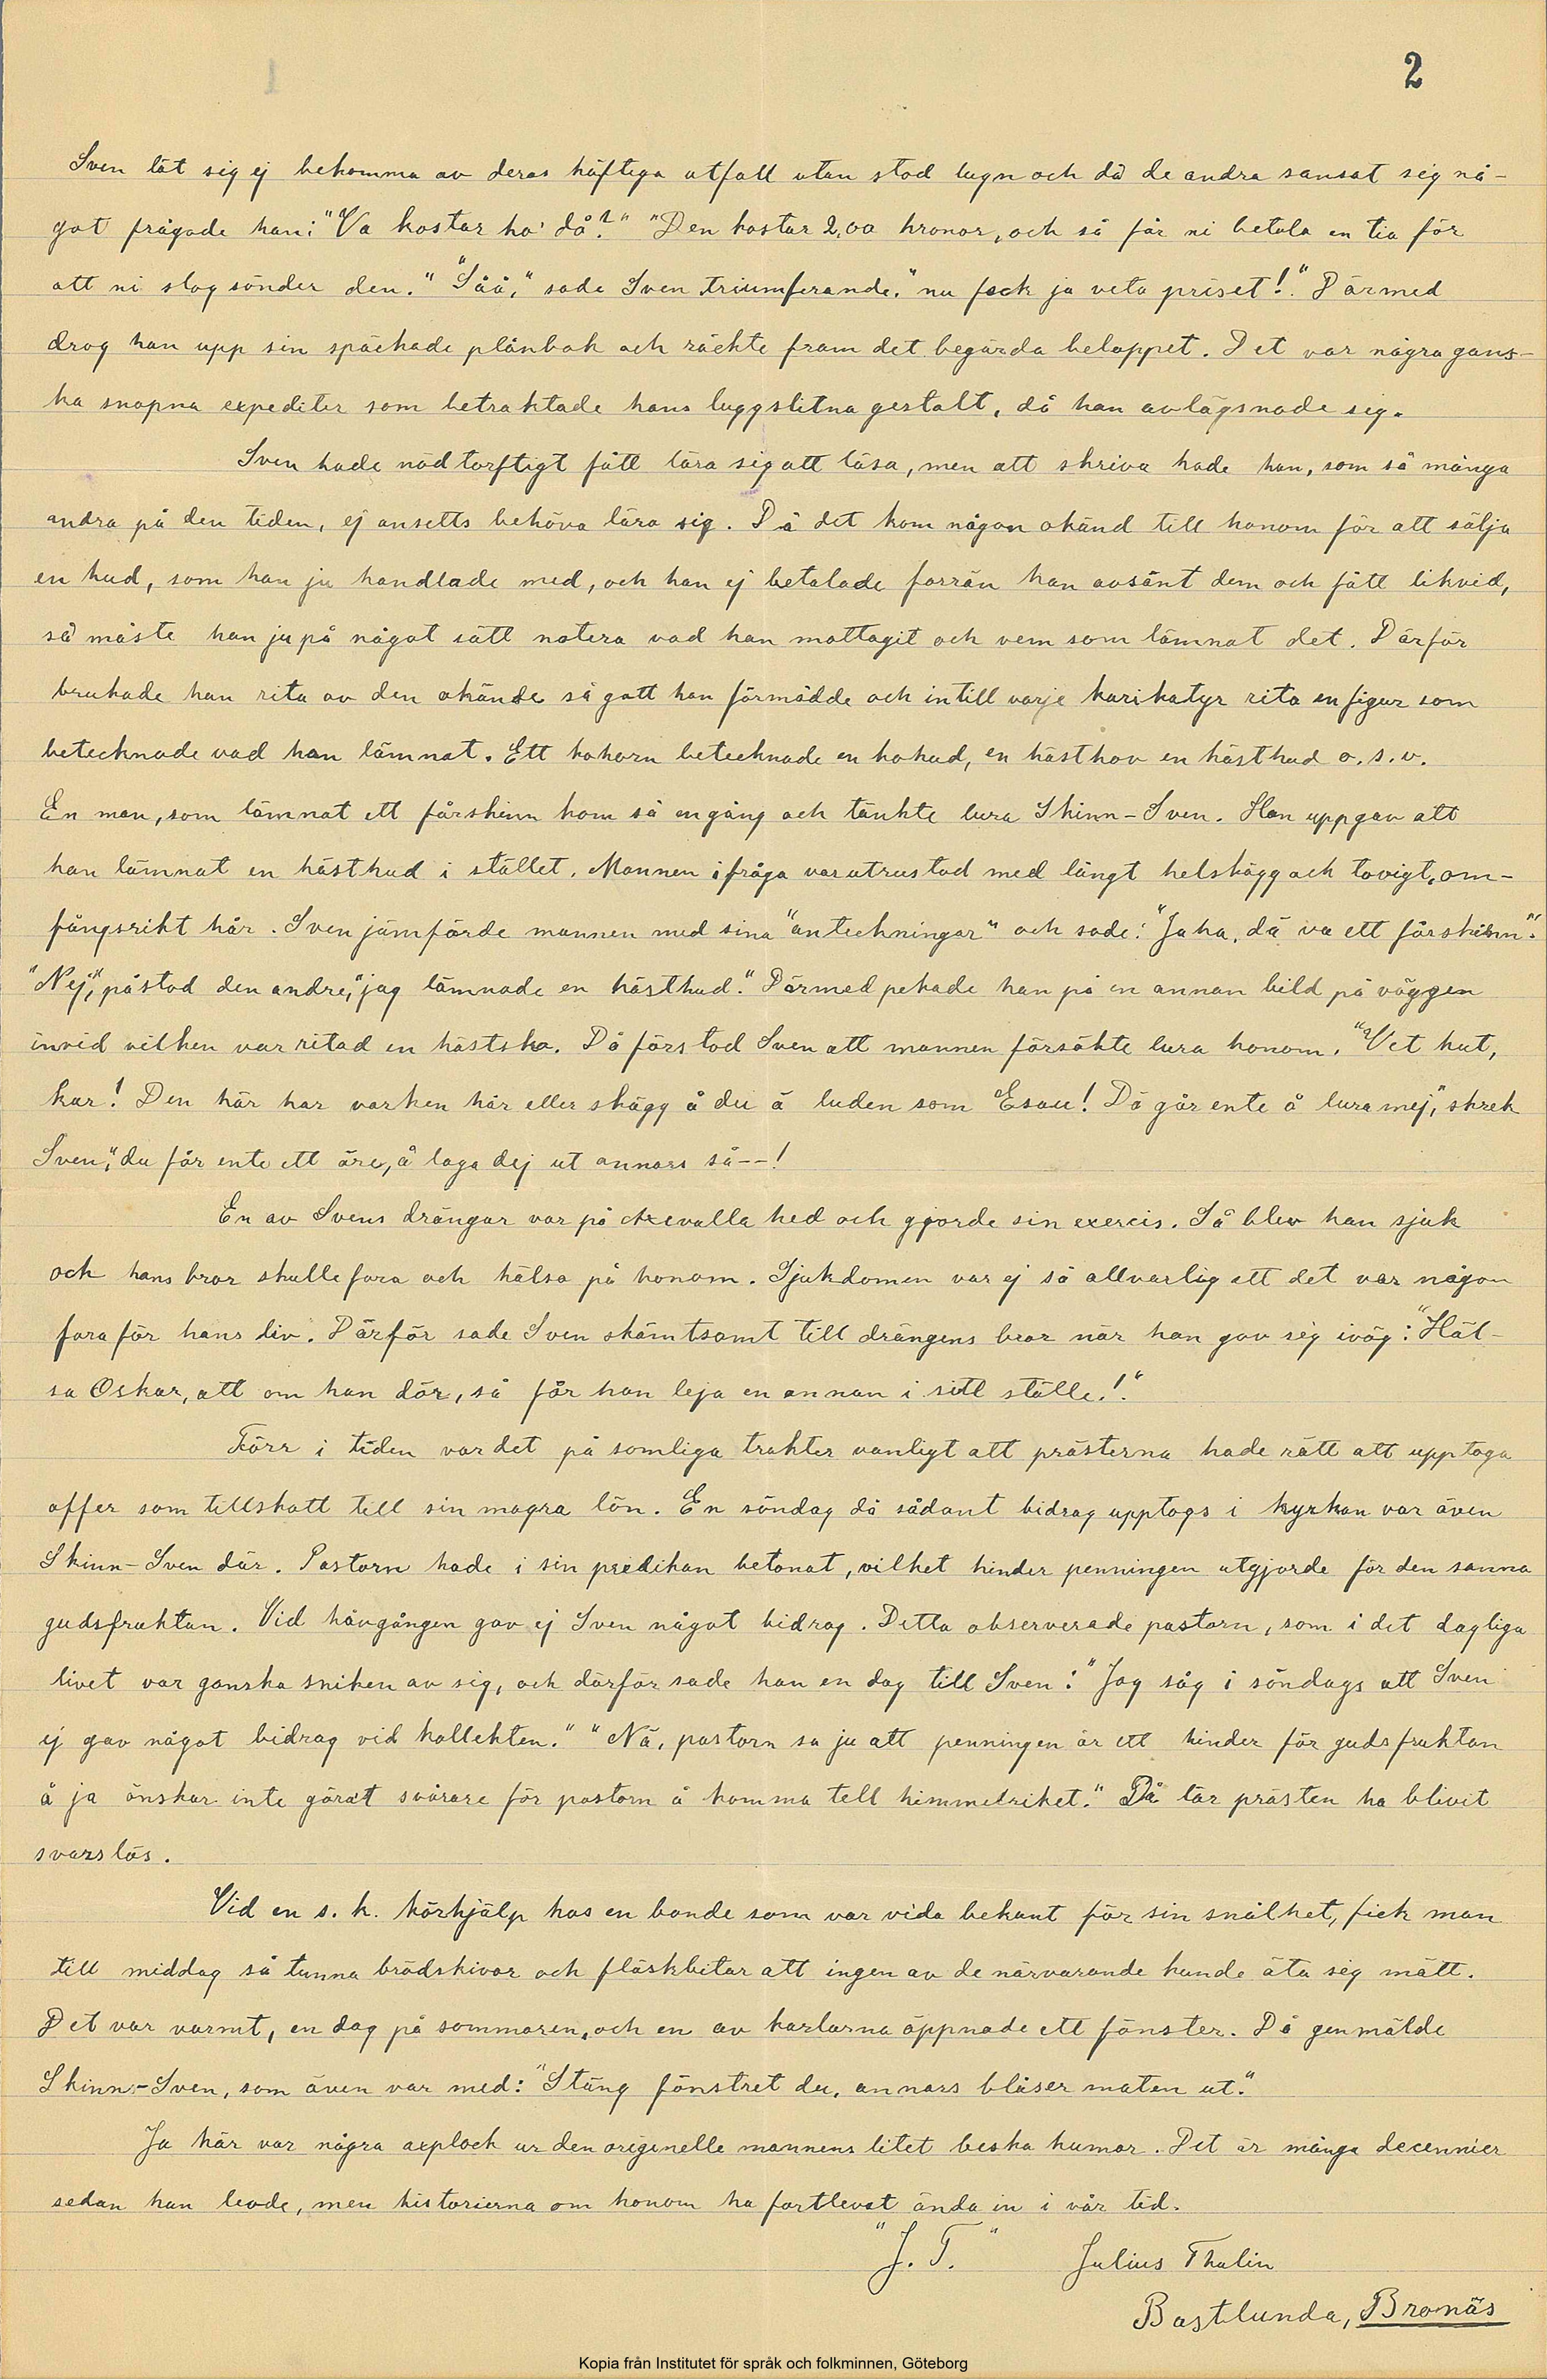 2
Sven lät sig ej bekomma av deras häftiga utfall utan stod lugn och då de andra sansat sig nå-
got frågade han: "Va kostar ho' då?" "Den kostar 2,00 kronor, och så får ni betala en tia för
att ni slog sönder den." "Såå," sade Sven triumferande, "nu feck ja veta priset!". Därmed
drog han upp sin späckade plånbok och räckte fram det begärda beloppet. Det var några gans-
ka snopna expediter som betraktade hans luggslitna gestalt, då han avlägsnade sig.
Sven hade nödtorftigt fått lära sig att läsa, men att skriva hade han, som så många
andra på den tiden, ej ansetts behöva lära sig. Då det kom någon okänd till honom för att sälja
en hud, som han ju handlade med, och han ej betalade förrän han avsänt dem och fått likvid,
så måste han ju på något sätt notera vad han mottagit och vem som lämnat det. Därför
brukade han rita av den okände så gott han förmådde och intill varje karikatyr rita en figur som
betecknade vad han lämnat. Ett kohorn betecknade en kohud, en hästhov en hästhud o.s.v.
En man, som lämnat ett fårskinn kom så en gång och tänkte lura Skinn-Sven. Han uppgav att
han lämnat en hästhud i stället. Mannen ifråga var utrustad med långt helskägg och tovigt, om-
fångsrikt hår. Sven jämförde mannen med sina "anteckningar" och sade: "Jaha, dä va ett fårskinn".
"Nej", påstod den andre, "jag lämnade en hästhud." Därmed pekade han på en annan bild på väggen
invid vilken var ritad en hästsko. Då förstod Sven att mannen försökte lura honom. "Vet hut,
kar! Den här har varken hår eller skägg å du ä luden som Esau! Dä går ente å lura mej", skrek
Sven, "du får ente ett öre, å laga dej ut annars så--!
En av Svens drängar var på Axevalla hed och gjorde sin exercis. Så blev han sjuk
och hans bror skulle fara och hälsa på honom. Sjukdomen var ej så allvarlig att det var någon
fara för hans liv. Därför sade Sven skämtsamt till drängens bror när han gav sig iväg: "Häl-
sa Oskar, att om han dör, så får han leja en annan i sitt ställe!".
Förr i tiden var det på somliga trakter vanligt att prästerna hade rätt att upptaga
offer som tillskott till sin magra lön. En söndag då sådant bidrag upptogs i kyrkan var även
Skinn-Sven där. Pastorn hade i sin predikan betonat, vilket hinder penningen utgjorde för den sanna
gudsfruktan. Vid håvgången gav ej Sven något bidrag. Detta observerade pastorn, som i det dagliga
livet var ganska sniken av sig, och därför sade han en dag till Sven: "Jag såg i söndags att Sven
ej gav något bidrag vid kollekten." "Nä, pastorn sa ju att penningen är ett hinder för gudsfruktan
å ja önskar inte göra't svårare för pastorn å komma tell himmelriket." Då lär prästen ha blivit
svarslös.
Vid en s.k. körhjälp hos en bonde som var vida bekant för sin snålhet, fick man
till middag så tunna brödskivor och fläskbitar att ingen av de närvarande kunde äta sig mätt.
Det var varmt, en dag på sommaren, och en av karlarna öppnade ett fönster. Då genmälde
Skinn-Sven, som även var med: "Stäng fönstret du, annars blåser maten ut."
Ja här var några axplock ur den originelle mannens litet beska humor. Det är många decennier
sedan han levde, men historierna om honom ha fortlevat ända in i vår tid.
"J. T." Julius Thalin
Bastlunda, Bromäs
Kopia från Institutet för språk och folkminnen, Göteborg